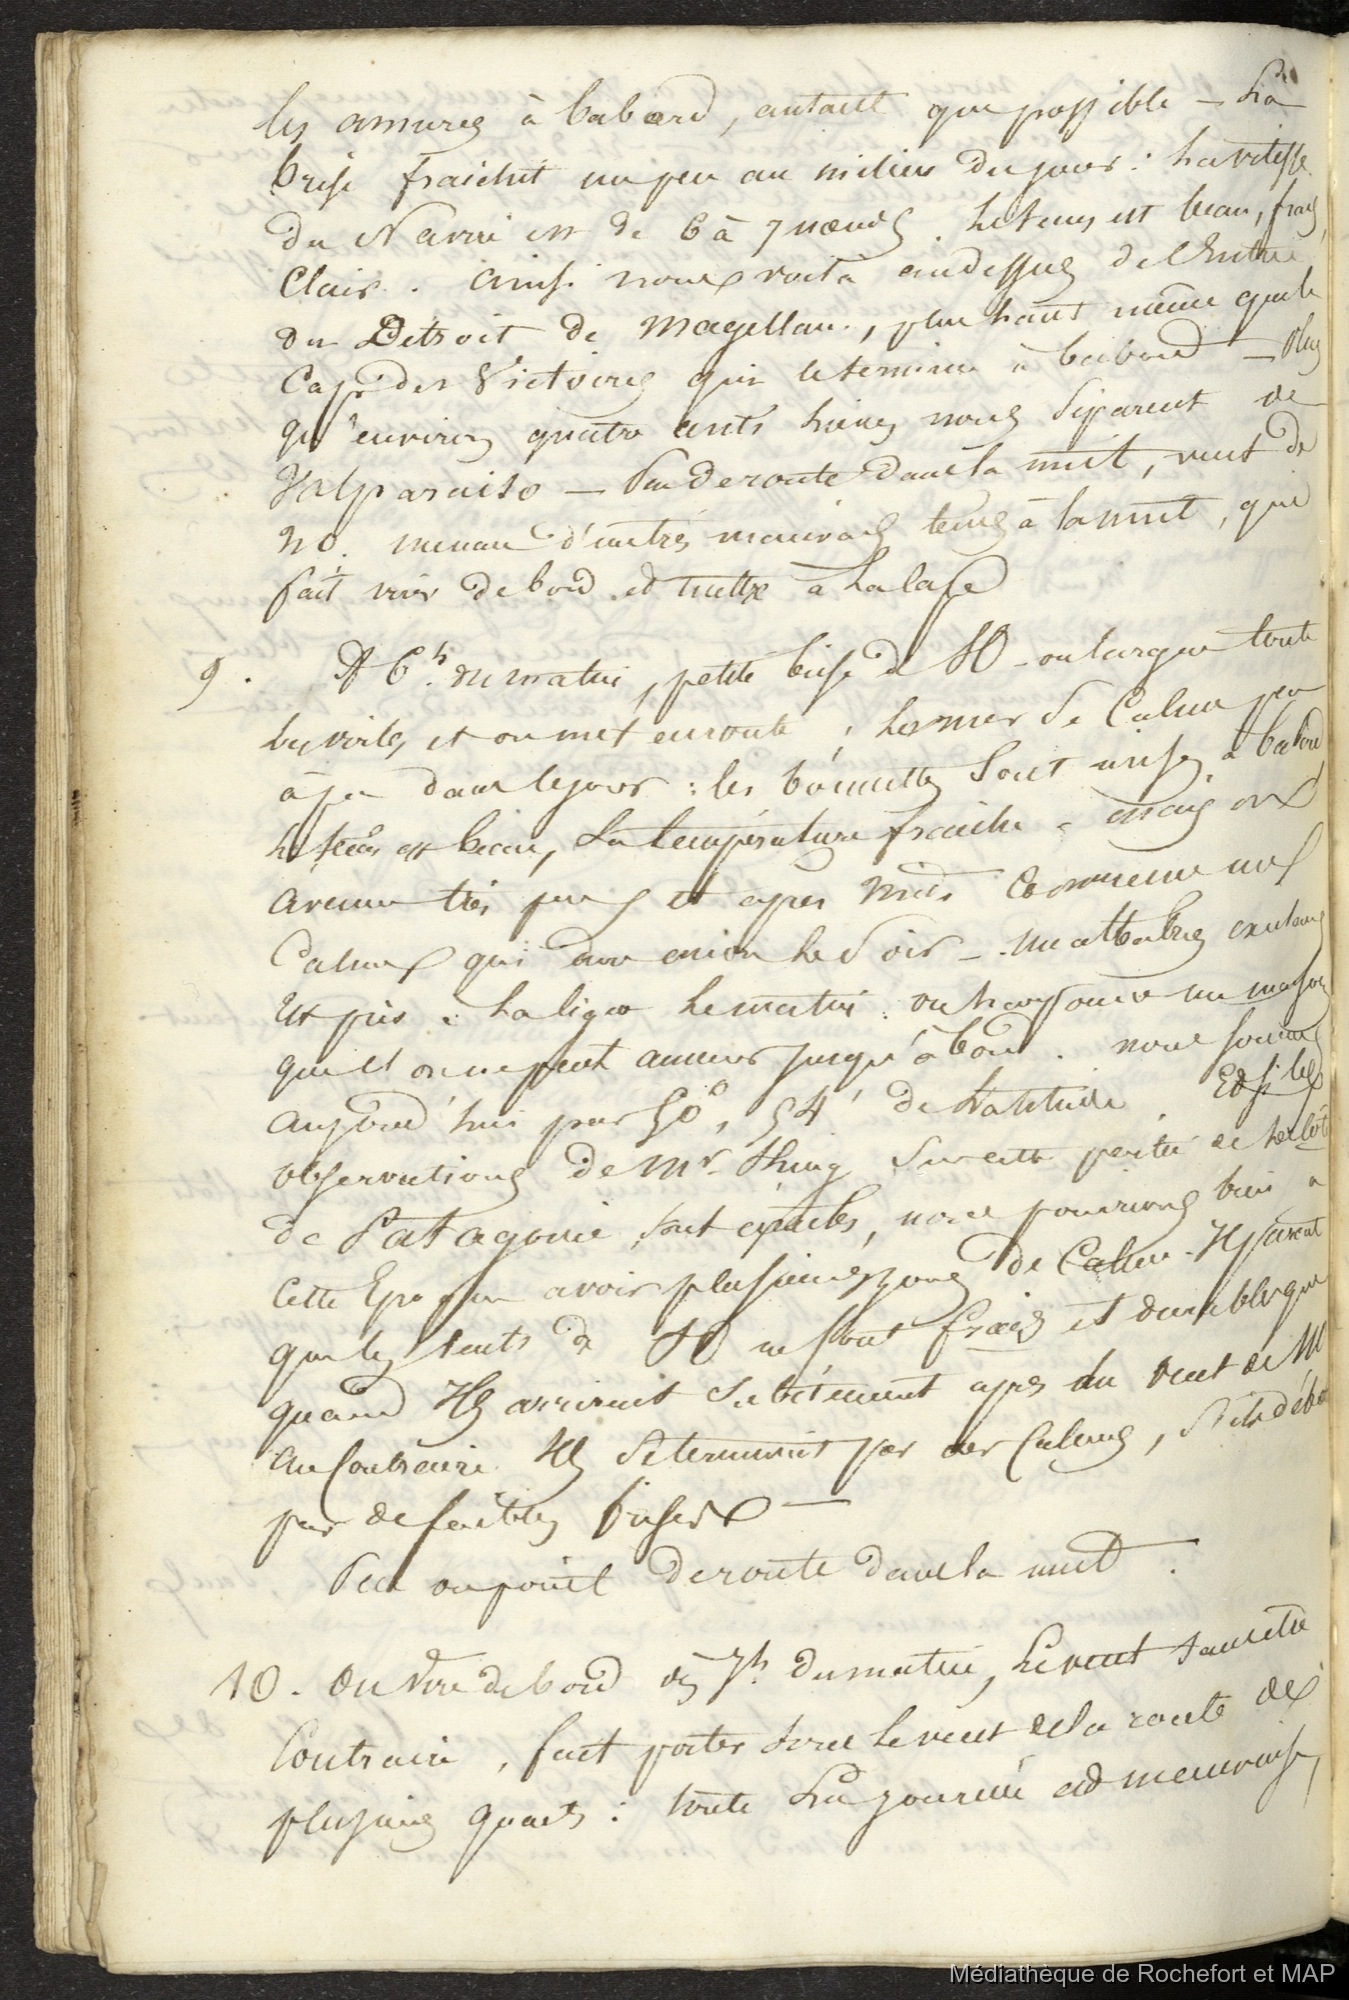 les amures à babord, autant que possible – La
brise fraichit un peu au milieu du jour : La vitesse
du Navire est de 6 à 7 nœuds. Le tems est beau, frais,
Clair. ainsi nous voilà audessus de l'Entrée
du Détroit de Magellan, plus haut même que le
Cap des Victoires qui le termine à babord – Plus
qu'environ quatre cents lieues nous séparent de
Valparaiso – Peu de route dans la nuit, vent de
NO. menace d'un très mauvais tems à la nuit, qui
fait virer de bord et mettre à La Cape
9. A 6h. du matin, petite brise de SO – on largue toutes
les voiles, et on met en route ; La mer se Calme peu
à peu dans le jour : les bonnettes sont mises à babord
Le tems est beau, La température fraiche – mais on
avance très peu et après midi Commence un
Calme qui dure encore Le Soir –
Est pris à La ligne Le matin : on harponne un marsouin
que l'on ne peut amener jusqu'à bord. nous sommes
aujourd'hui par 50°, 54' de Latitude. Et si les
observations de Mr. King sur cette partie de la Côte
de Patagonie sont exactes, nous pourrions bien à
Cette Epoque avoir plusieurs jours de Calme – Il parait
que les vents de SO ne sont frais et durables que
quand Ils arrivent subitement après du vent de N
au Contraire Ils se terminent par des Calmes, s'ils débutent
par de faibles brises –
Peu ou point de route dans la nuit.
10. On vire de bord dès 7h. du matin, Le vent sans être
Contraire, fait porter sous Le vent de la route de
plusieurs quarts : toute La journée est mauvaise,
Médiathèque de Rochefort et MAP